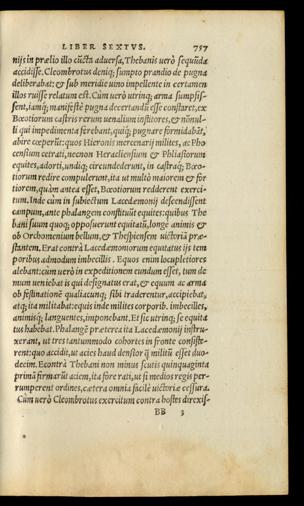 LIBER SEXTVS. 757
nijs in prælio illo cũcta aduersa, Thebanis uerò sequũda
accidisse. Cleombrotus deniq; sumpto prandio de pugna
deliberabat: & sub meridie uino impellente in certamen
illos ruisse relatum est. Cùm uerò utrinq; arma sumpsis-
sent, iamq; manifestè pugna decertandũ esse constaret, ex
Bœotiorum castris rerum uenalium institores, & nõnul-
li qui impedimenta ferebant, quiq; pugnare formidabãt,
abire cœperũt: quos Hieronis mercenarij milites, ac Pho
censium cetrati, necnon Heracliensium & Phliasiorum
equites, adorti, undiq; circundederunt, in castraq; Bœo-
tiorum redire compulerunt, ita ut multò maiorem & for
tiorem, quàm antea esset, Bœotiorum redderent exerci-
tum. Inde cùm in subiectum Lacedæmonij descendissent
campum, ante phalangem constituũt equites: quibus The
bani suum quoq; opposuerunt equitatũ, longè animis &
ob Orchomenium bellum, & Thespiensem uictoriã præ-
stantem. Erat contrà Lacedæmoniorum equitatus ijs tem
poribus admodum imbecillis. Equos enim locupletiores
alebant: cùm uerò in expeditionem eundum esset, tum de
mum ueniebat is qui designatus erat, & equum ac arma
ob festinationẽ qualiacunq; sibi traderentur, accipiebat,
atq; ita militabat: equis inde milites corporib. imbecilles,
animisq; languentes, imponebant. Et sic utrinq; se equita
tus habebat. Phalangẽ præterea ita Lacedæmonij instru-
xerant, ut tres tantummodo cohortes in fronte consiste-
rent: quo accidit, ut acies haud densior q̃ militũ esset duo-
decim. Econtrà Thebani non minus scutis quinquaginta
primã firmarũt aciem, ita fore rati, ut si medios regis per-
rumperent ordines, cætera omnia facilè uictoriæ cessura.
Cùm uerò Cleombrotus exercitum contra hostes direxis-
BB 3